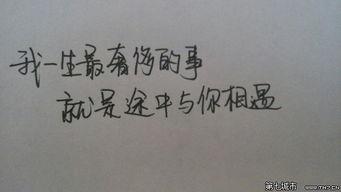 我一生最奢侈的事
就是途中与你相遇
第七城市